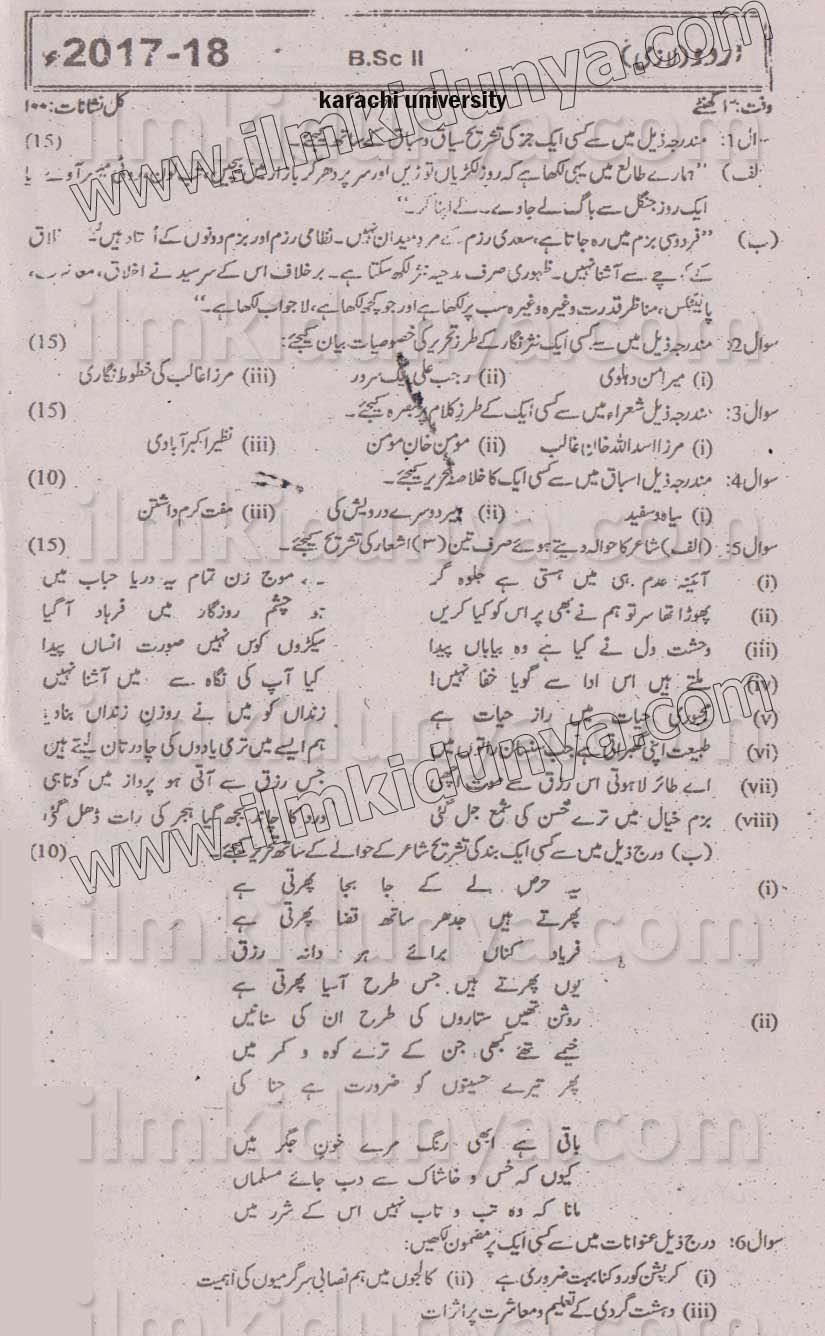 2017-18ء
B.Sc II
اردو (لازمی)
karachi university
وقت: ۳ گھنٹے
کل نشانات: ۱۰۰
مندرجہ ذیل میں سے کسی ایک جز کی تشریح سیاق و سباق کے ساتھ کیجئے۔ (15)
"ہمارے طالع میں یہی لکھا ہے کہ روز لکڑیاں توڑیں اور سر پر دھر کر بازار میں بیچیں، تب روٹی میسر آوے یا
ایک روز جنگل سے باگ لے جاوے۔
(ب) "فردوسی بزم میں رہ جاتا ہے، سعدی رزم کے مرد میدان نہیں۔ نظامی رزم اور بزم دونوں کے استاد ہیں
کے کوچے سے آشنا نہیں۔ ظہوری صرف مدحیہ نثر لکھ سکتا ہے۔ برخلاف اس کے سرسید نے اخلاق، معاشرت،
پالیٹکس، مناظر قدرت وغیرہ وغیرہ سب پر لکھا ہے اور جو کچھ لکھا ہے، لاجواب لکھا ہے۔"
سوال 2: مندرجہ ذیل میں سے کسی ایک نثر نگار کے طرز تحریر کی خصوصیات بیان کیجئے: (15)
(i) میر امن دہلوی (ii) رجب علی بیگ سرور (iii) مرزا غالب کی خطوط نگاری
سوال 3: مندرجہ ذیل شعراء میں سے کسی ایک کے طرز کلام پر تبصرہ کیجئے۔ (15)
(i) مرزا اسد اللہ خاں غالب (ii) مومن خان مومن (iii) نظیر اکبر آبادی
سوال 4: مندرجہ ذیل اسباق میں سے کسی ایک کا خلاصہ تحریر کیجئے۔ (10)
(i) سیاہ و سفید (ii) سیر دوسرے درویش کی (iii) مفت کرم داشتن
سوال 5: (الف) شاعر کا حوالہ دیتے ہوئے صرف تین (۳) اشعار کی تشریح کیجئے۔ (15)
(i) آئینہ عدم ہی میں ہستی ہے جلوہ گر ہے موج زن تمام یہ دریا حباب میں
(ii) پھوڑا تھا سر تو ہم نے بھی پر اس کو کیا کریں جو چشم روزگار میں فرہاد آ گیا
(iii) وحشت دل نے کیا ہے وہ بیاباں پیدا سیکڑوں کوس نہیں صورت انساں پیدا
(iv) ملتے ہیں اس ادا سے گویا خفا نہیں! کیا آپ کی نگاہ سے میں آشنا نہیں
(v) مجبوری حیات میں راز حیات ہے زنداں کو میں نے روزن زنداں بنا دیا
(vi) طبیعت اپنی گھبراتی ہے جب سنسان راتوں میں ہم ایسے میں تری یادوں کی چادر تان لیتے ہیں
(vii) اے طائر لاہوتی اس رزق سے موت اچھی جس رزق سے آتی ہو پرواز میں کوتاہی
(viii) بزم خیال میں ترے حسن کی شمع جل گئی درد کا چاند بجھ گیا ہجر کی رات ڈھل گئی
(ب) درج ذیل میں سے کسی ایک بند کی تشریح شاعر کے حوالے کے ساتھ تحریر کیجئے (10)
(i) یہ حرص لے کے جا بجا پھرتی ہے
پھرتے ہیں جدھر ساتھ قضا پھرتی ہے
فریاد کناں برائے ہر دانہ رزق
یوں پھرتے ہیں جس طرح آسیا پھرتی ہے
(ii) روشن تھیں ستاروں کی طرح ان کی سنانیں
خیمے تھے کبھی جن کے ترے کوہ و کمر میں
پھر تیرے حسینوں کو ضرورت ہے حنا کی
باقی ہے ابھی رنگ مرے خون جگر میں
کیوں کہ خس و خاشاک سے دب جائے مسلماں
مانا کہ وہ تب و تاب نہیں اس کے شرر میں
سوال 6: درج ذیل عنوانات میں سے کسی ایک پر مضمون لکھیں:
(i) کرپشن کو روکنا بہت ضروری ہے (ii) کالجوں میں ہم نصابی سرگرمیوں کی اہمیت
(iii) دہشت گردی کے تعلیم و معاشرت پر اثرات
www.ilmkidunya.com
www.ilmkidunya.com
ilmkidunya.com
ilmkidunya.com
ilmkidunya.com
ilmkidunya.com
ilmkidunya.com
ilmkidunya.com
ilmkidunya.com